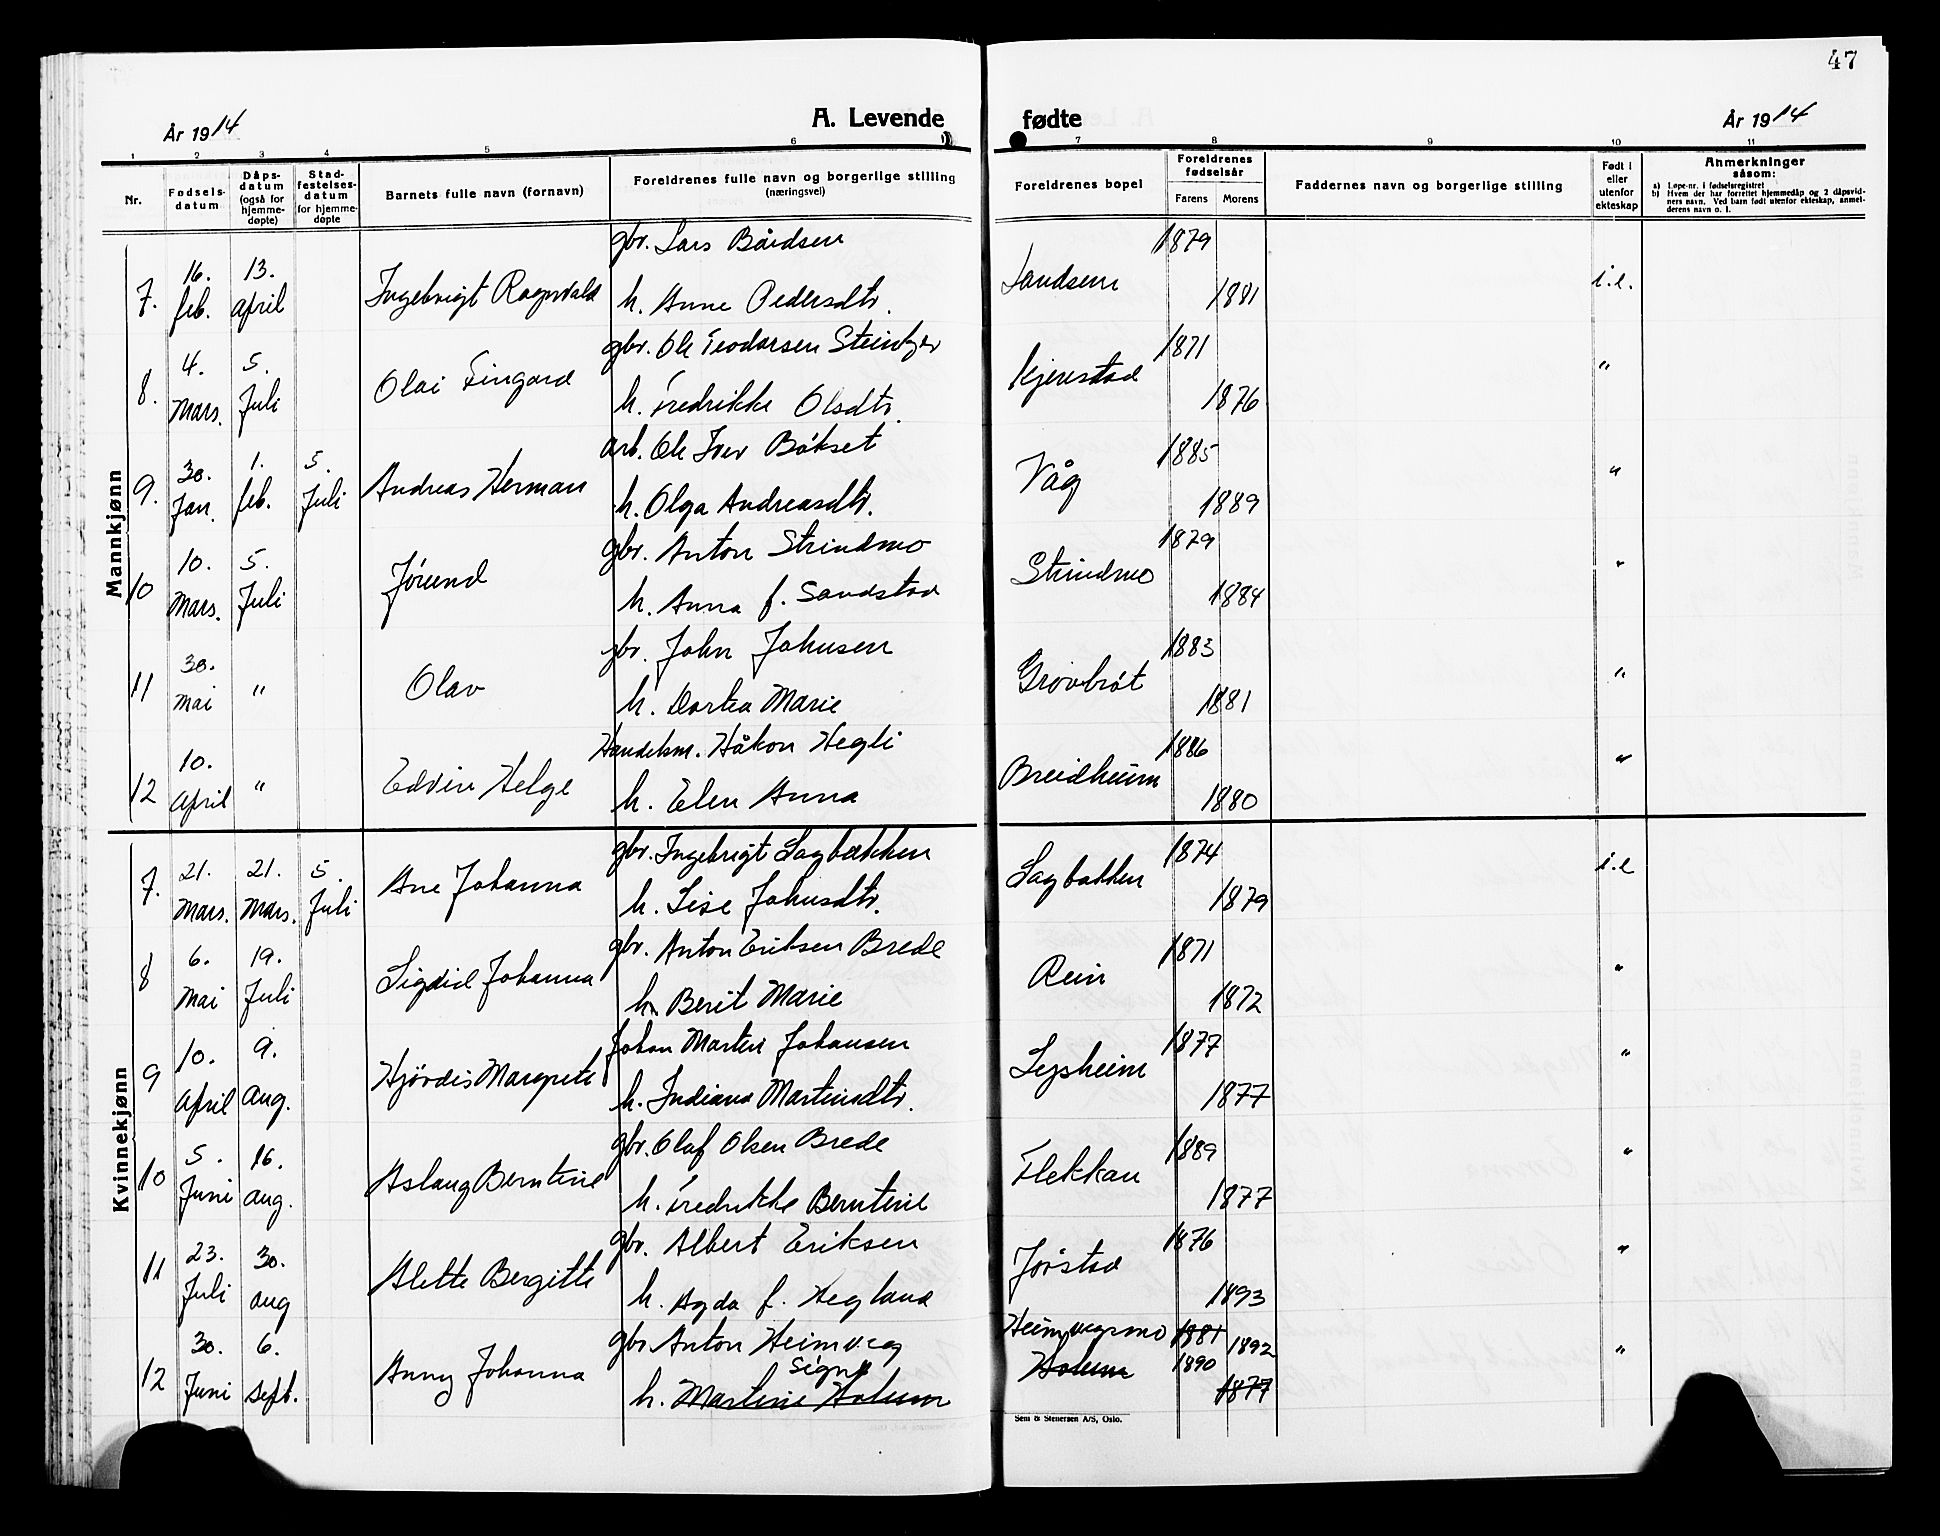 47
År 1914
A. Levende fødte
År 1914
1 2 3 4 5 6 7 8 9 10 11
Nr.
Fødsels-
datum
Dåps-
datum
(også for
hjemme-
døpte)
Stad-
festelses-
datum
for hjemme-
døpte
Barnets fulle navn (fornavn)
Foreldrenes fulle navn og borgerlige stilling
(næringsvei)
Foreldrenes bopel
Foreldrenes
fødselsår
Farens Morens
Faddernes navn og borgerlige stilling
Født i
eller
utenfor
ekteskap
Anmerkninger
såsom:
a) Løpe-nr. i fødselsregistret
b) Hvem der har forrettet hjemmedåp og 2 dåpsvid-
ners navn. Ved barn født utenfor ekteskap, anmel-
derens navn o. l.
Mannkjønn
gbr. Lars Bårdsen 1879
7. 16. feb. 13. april Ingebrigt Ragnvald Sandsem i.e.
h. Anne Pedersdtr. 1881
gbr. Ole Teodorsen 1871
8. 4. Mars. 5. Juli Olai Fingard Kjenstad "
h. Fredrikke Olsdtr. 1876
arb. Ole Iver Bökset 1885
9. 30. Jan. 1. feb. 5. Juli Andreas Herman Våg "
h. Olga Andreasdtr. 1889
gbr. Anton Strindmo 1879
10 10. Mars. 5. Juli Jörund Strindmo "
h. Anna f. Sandstad 1884
gbr. John Johnsen 1883
11 30. Mai " Olav Grovbröt "
h. Dortea Marie 1881
Handelsm. Håkon Hegli 1886
12 10. April " Edvin Helge Breidheim "
h. Elen Anna 1880
Kvinnekjønn
gbr. Ingebrigt Sagbakken 1874
7. 21. Mars. 21. Mars. 5. Juli Ane Johanna Sagbakken i.e
h. Lise Johnsdtr. 1879
gbr. Anton Eriksen Brede 1871
8 6. Mai 19. Juli Sigdid Johanna Rein "
h. Berit Marie 1872
Johan Martin Johansen 1877
9 10. April 9. Aug. Hjördis Margrete Lysheim "
h. Indiana Martinsdtr. 1877
gbr. Olaf Olsen Brede 1889
10 5. Juni 16. aug. Aslaug Berntine Flekkan "
h. Fredrikke Berntine 1877
gbr. Albert Eriksen 1876
11 23. Juli 30. aug Alette Bergitte Jörstad "
h. Agda f. Hegland 1893
gbr Anton Heimveg Heimvegsmo 1881 1892
12 30. Juni 6. sept. Anny Johanna Signe Holum 1890 "
h. Martine Holum 1877
Sem & Stenersen A/S, Oslo.